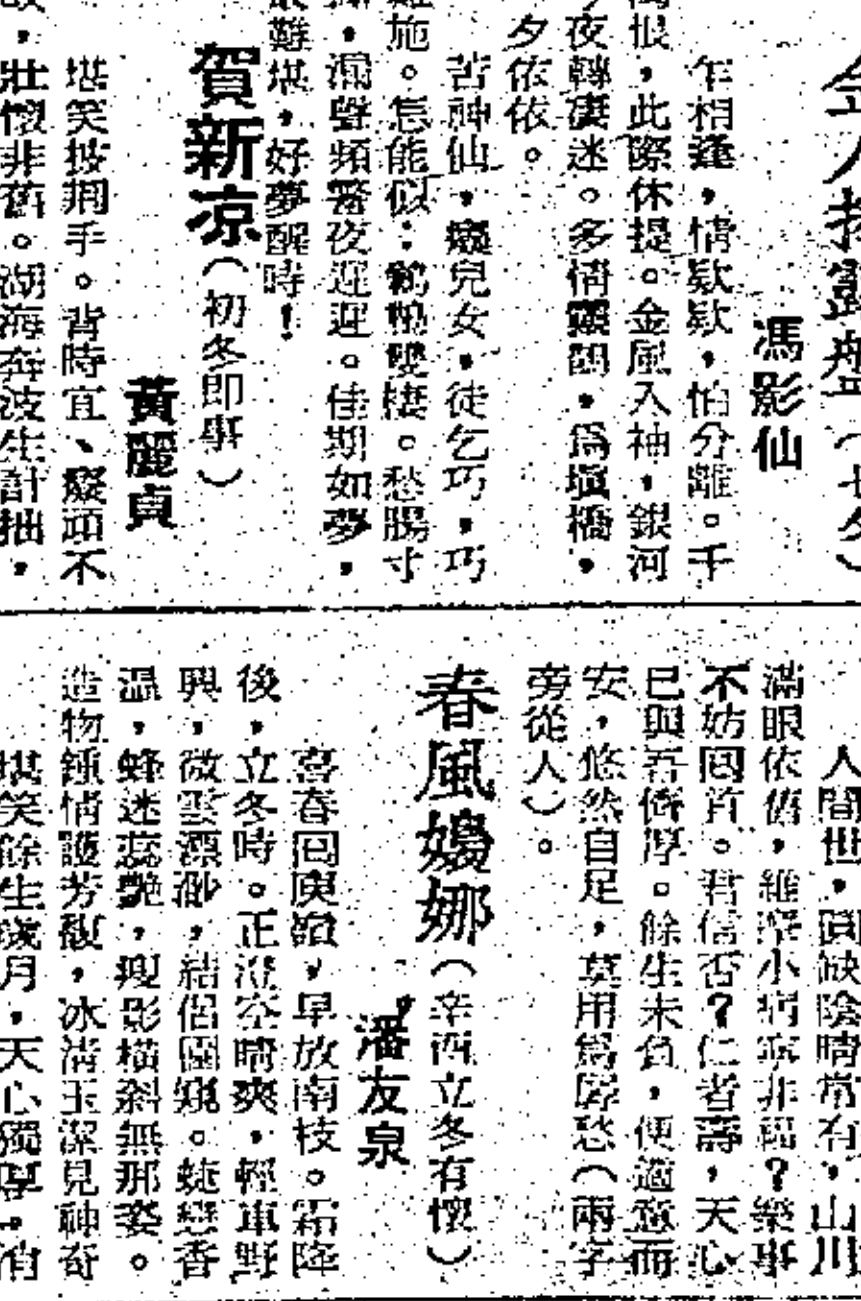 金人捧露盤（七夕）
馮影仙
乍相逢，情欵欵，怕分離。千
恨，此際休提。金風入袖，銀河
夜轉淒迷。多情靈鵲，爲塡橋，
夕依依。
苦神仙，癡兒女，徒乞巧，巧
施。怎能似：鴛鴦雙棲。愁腸寸
，漏聲頻警夜遲遲。佳期如夢，
難堪，好夢醒時！
賀新凉（初冬即事）
黃麗貞
堪笑披荆手。背時宜、癡頑不
，壯懷非舊。湖海奔波生計拙，
人間世，圓缺陰晴常有，山川
滿眼依舊，維摩小病寧非福？樂事
不妨囘首。君信否？仁者壽，天心
已與吾儕厚。餘生未負，便適意而
安，悠然自足，莫用爲孱愁（兩字
旁從人）。
春風嬝娜（辛酉立冬有懷）
潘友泉
喜春囘庾嶺，早放南枝。霜降
後，立冬時。正澄空晴爽，輕車野
興，微雲漂渺，結侶園窺。蜨戀香
溫，蜂迷蕊艷，瘦影橫斜無那姿。
造物鍾情護芳馥，冰淸玉潔見神奇
堪笑餘生歲月，天心獨厚。消